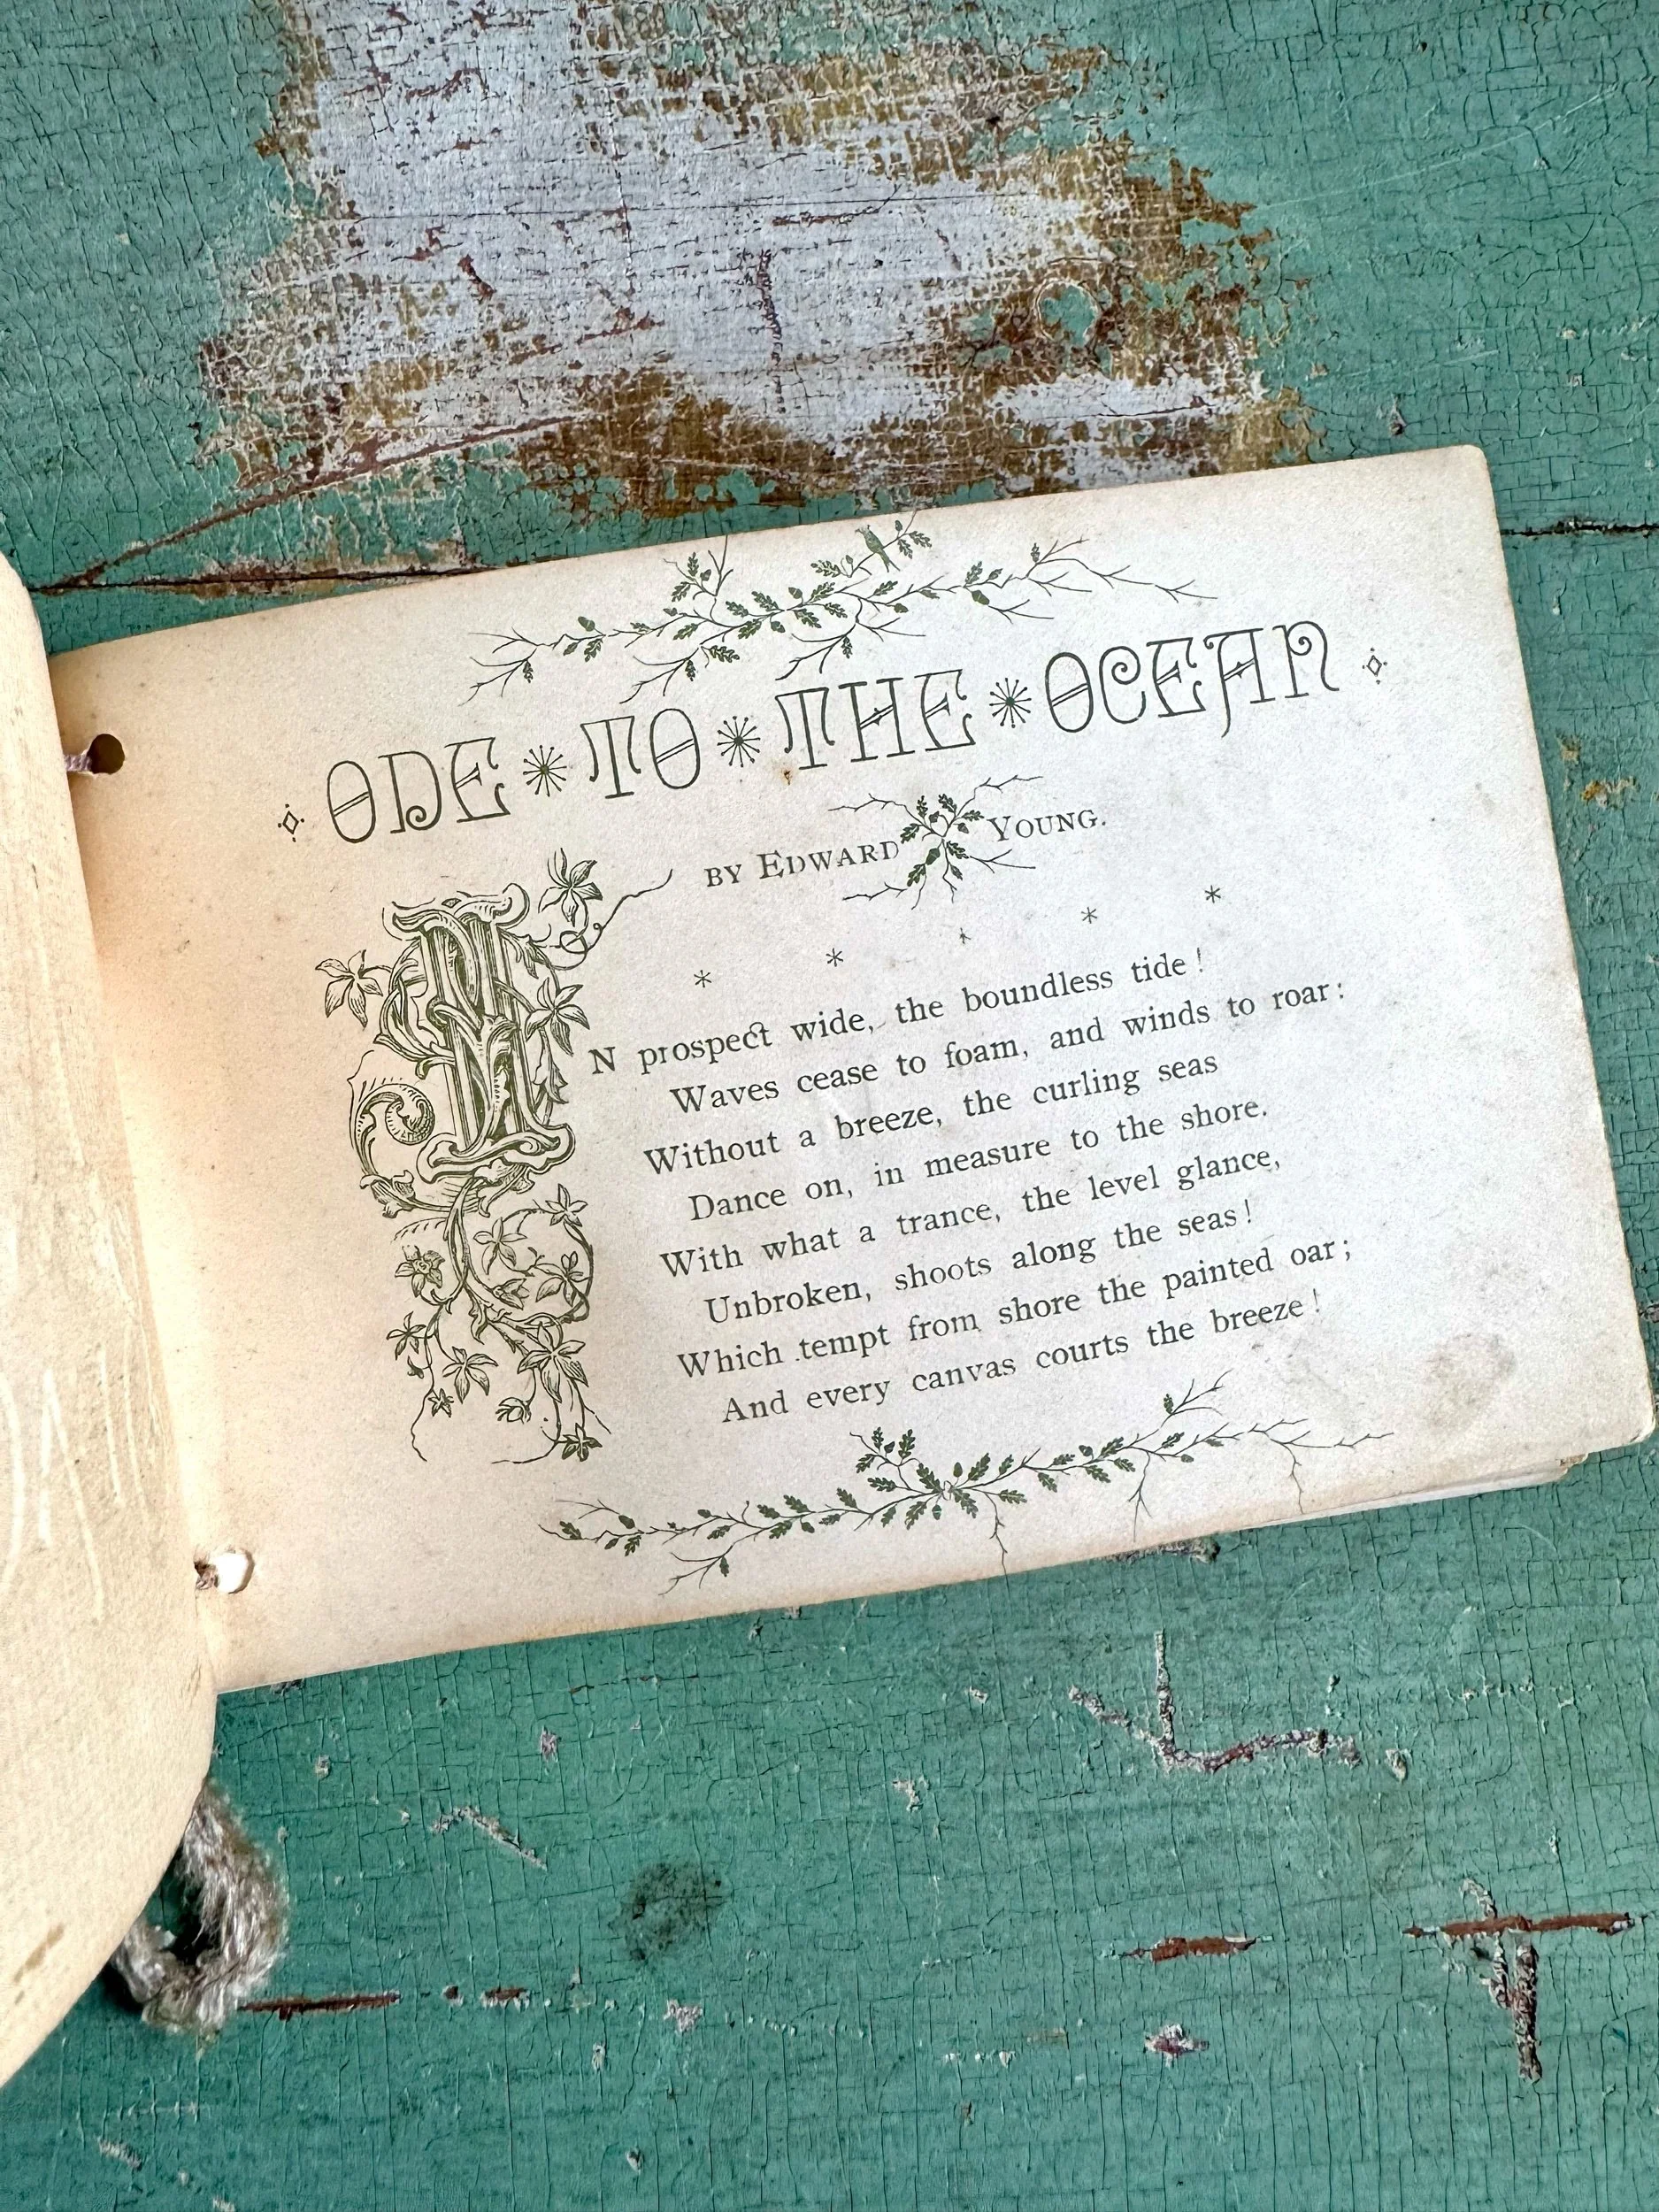 ODE TO THE OCEAN
BY EDWARD YOUNG.
* * * * *
IN prospect wide, the boundless tide!
Waves cease to foam, and winds to roar:
Without a breeze, the curling seas
Dance on, in measure to the shore.
With what a trance, the level glance,
Unbroken, shoots along the seas!
Which tempt from shore the painted oar;
And every canvas courts the breeze!